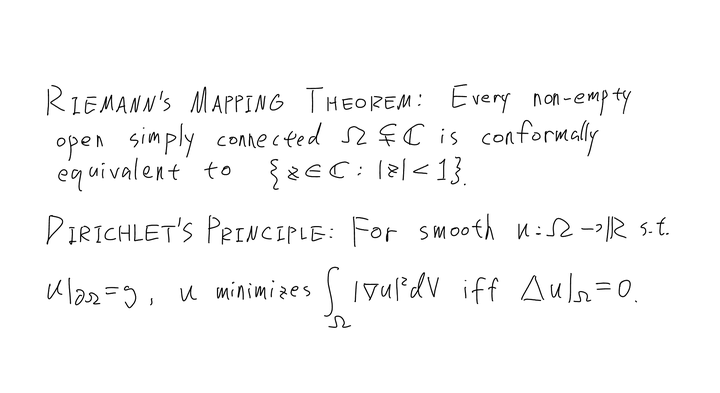 RIEMANN'S MAPPING THEOREM: Every non-empty
open simply connected Ω ⊊ ℂ is conformally
equivalent to {z ∈ ℂ : |z| < 1}.
DIRICHLET'S PRINCIPLE: For smooth u: Ω → ℝ s.t.
u|∂Ω = g, u minimizes ∫Ω |∇u|² dV iff Δu|Ω = 0.